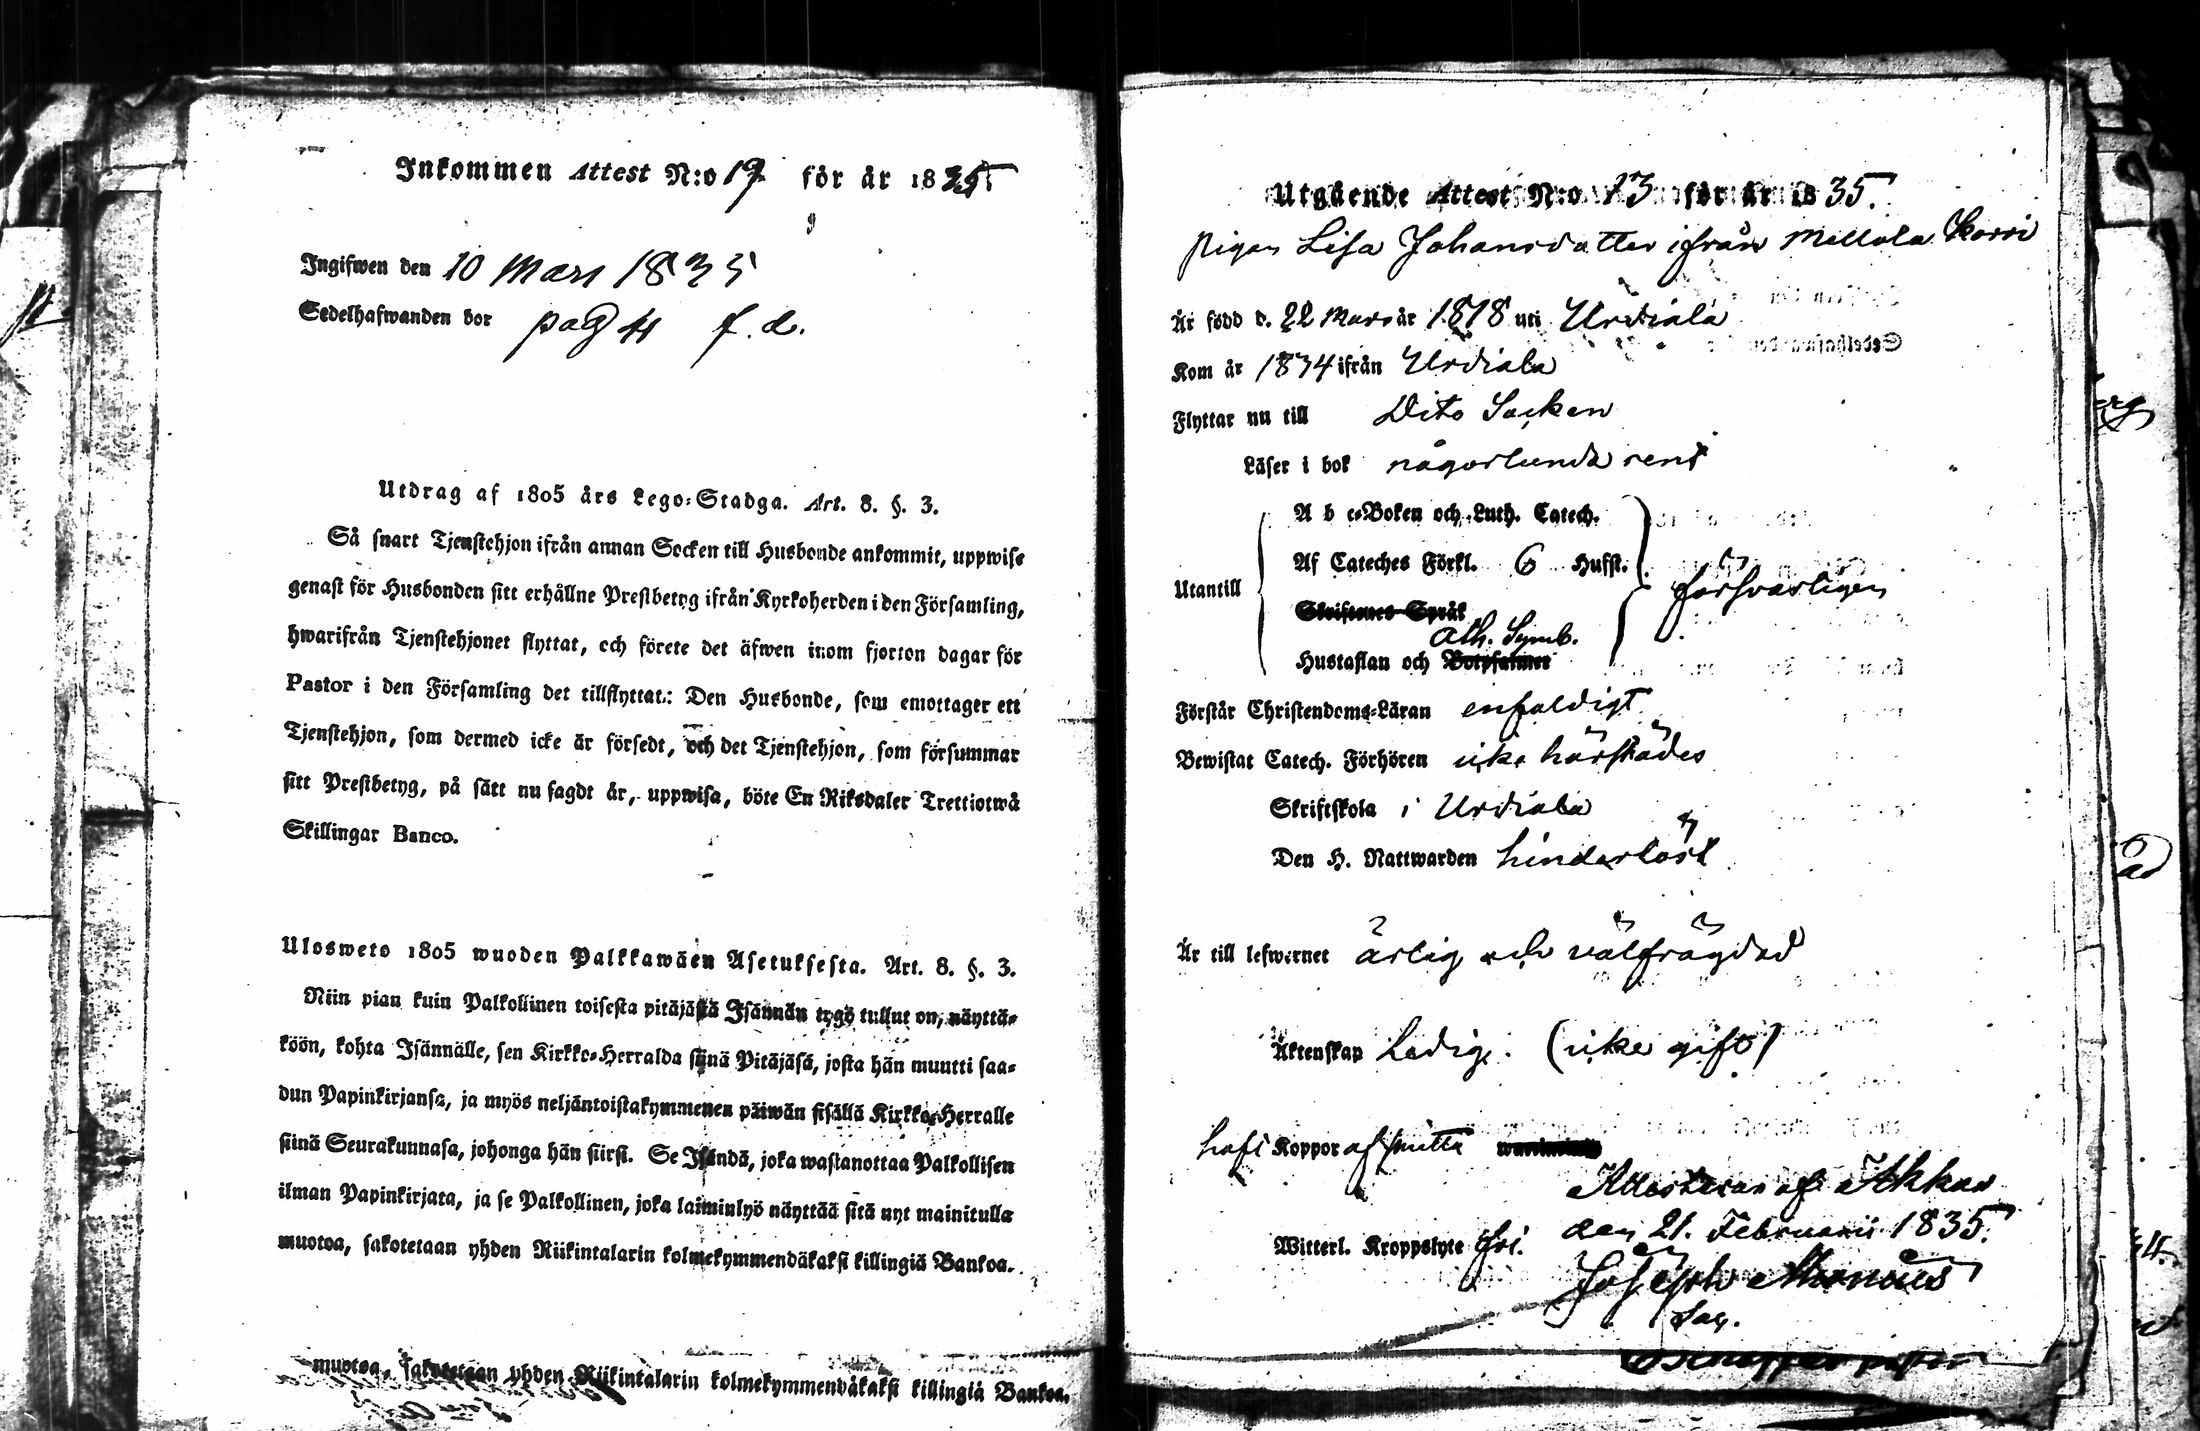 Inkommen Attest N:o 17 för år 1835.
Ingifwen den 10 Mars 1835
Sedelhafwanden bor pag 41 f. d.
Utdrag af 1805 års Lego-Stadga. Art. 8. §. 3.
Så snart Tjenstehjon ifrån annan Socken till Husbonde ankommit, uppwise
genast för Husbonden sitt erhållne Prestbetyg ifrån Kyrkoherden i den Församling,
hwarifrån Tjenstehjonet flyttat, och förete det äfwen inom fjorton dagar för
Pastor i den Församling det tillflyttat.: Den Husbonde, som emottager ett
Tjenstehjon, som dermed icke är försedt, och det Tjenstehjon, som försummar
sitt Prestbetyg, på sätt nu sagdt är, uppwisa, böte En Riksdaler Trettiotwå
Skillingar Banco.
Ulosweto 1805 wuoden Palkkawäen Asetuksesta. Art. 8. §. 3.
Niin pian kuin Palkollinen toisesta pitäjästä Isännän tygö tullut on, näyttä-
köön, kohta Isännälle, sen Kirkko-Herralda siinä Pitäjäsä, josta hän muutti saa-
dun Papinkirjansa, ja myös neljäntoistakymmenen päiwän sisällä Kirkko-Herralle
siinä Seurakunnasa, johonga hän siirsi. Se Isändä, joka wastanottaa Palkollisen
ilman Papinkirjata, ja se Palkollinen, joka laiminlyö näyttää sitä nyt mainitulla
muotoa, sakotetaan yhden Riikintalarin kolmekymmendäkaksi killingiä Bankoa.
muotoa, sakotetaan yhden Riikintalarin kolmekymmendäkaksi killingiä Bankoa.
Utgående Attest N:o 13 för år 1835.
Pigan Lisa Johansdotter ifrån Mellola Korri
Är född d. 22 Mars år 1818 uti Urdiala
Kom år 1834 ifrån Urdiala
Flyttar nu till Dito Socken
Läser i bok någorlunda rent
A b c-Boken och Luth. Catech.
Af Cateches Förkl. 6 Hufst.
Utantill försvarligen
Skriftenes Språk
Ath. Symb.
Hustaflan och Botpsalmer
Förstår Christendoms-Läran enfaldigt
Bewistat Catech. Förhören icke härstädes
Skriftskola i Urdiala
Den H. Nattwarden hinderlöst
Är till lefwernet ärlig och välfrägdad
Äktenskap Ledig. (icke gift)
haft Koppor af Smitta
Attesteras af Akkas
den 21. Februarii 1835.
Witterl. Kroppslyte fri.
Joseph
Sac.